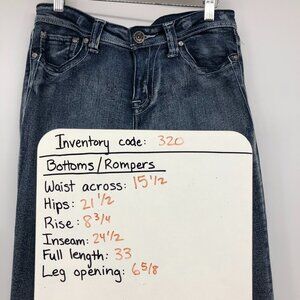 Inventory code: 320
Bottoms/Rompers
Waist across: 15 1/2
Hips: 21 1/2
Rise: 8 3/4
Inseam: 24 1/2
Full length: 33
Leg opening: 6 5/8